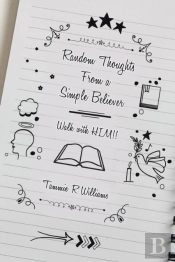 Random Thoughts
From a
Simple Believer
Walk with HIM!!
Tammie R Williams
B